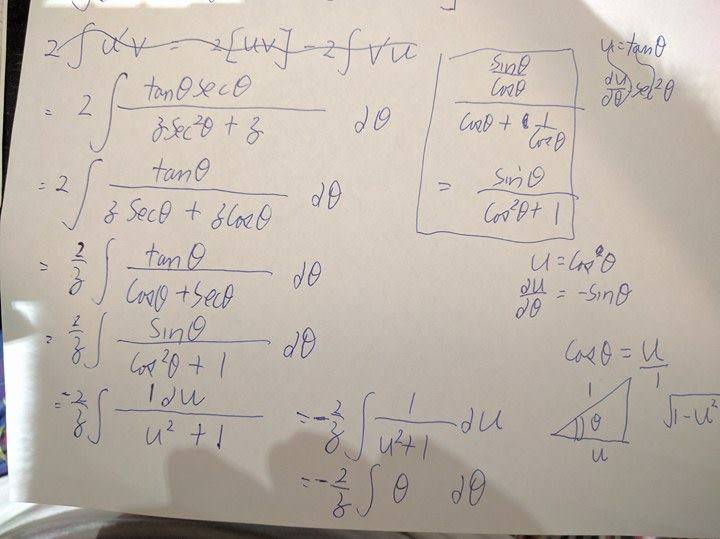 2∫u'v = 2[uv] - 2∫vu
= 2∫ (tanθ secθ)/(z sec²θ + z) dθ
= 2∫ tanθ/(z secθ + z cosθ) dθ
= 2/z ∫ tanθ/(cosθ + secθ) dθ
= 2/z ∫ sinθ/(cos²θ + 1) dθ
= -2/z ∫ 1du/(u² + 1)
= -2/z ∫ 1/(u²+1) du
= -2/z ∫ θ dθ
(sinθ/cosθ)/(cosθ + 1/cosθ)
= sinθ/(cos²θ + 1)
u = tanθ
du/dθ sec²θ
u = cosθ
du/dθ = -sinθ
cosθ = u/1
1
θ
√(1-u²)
u